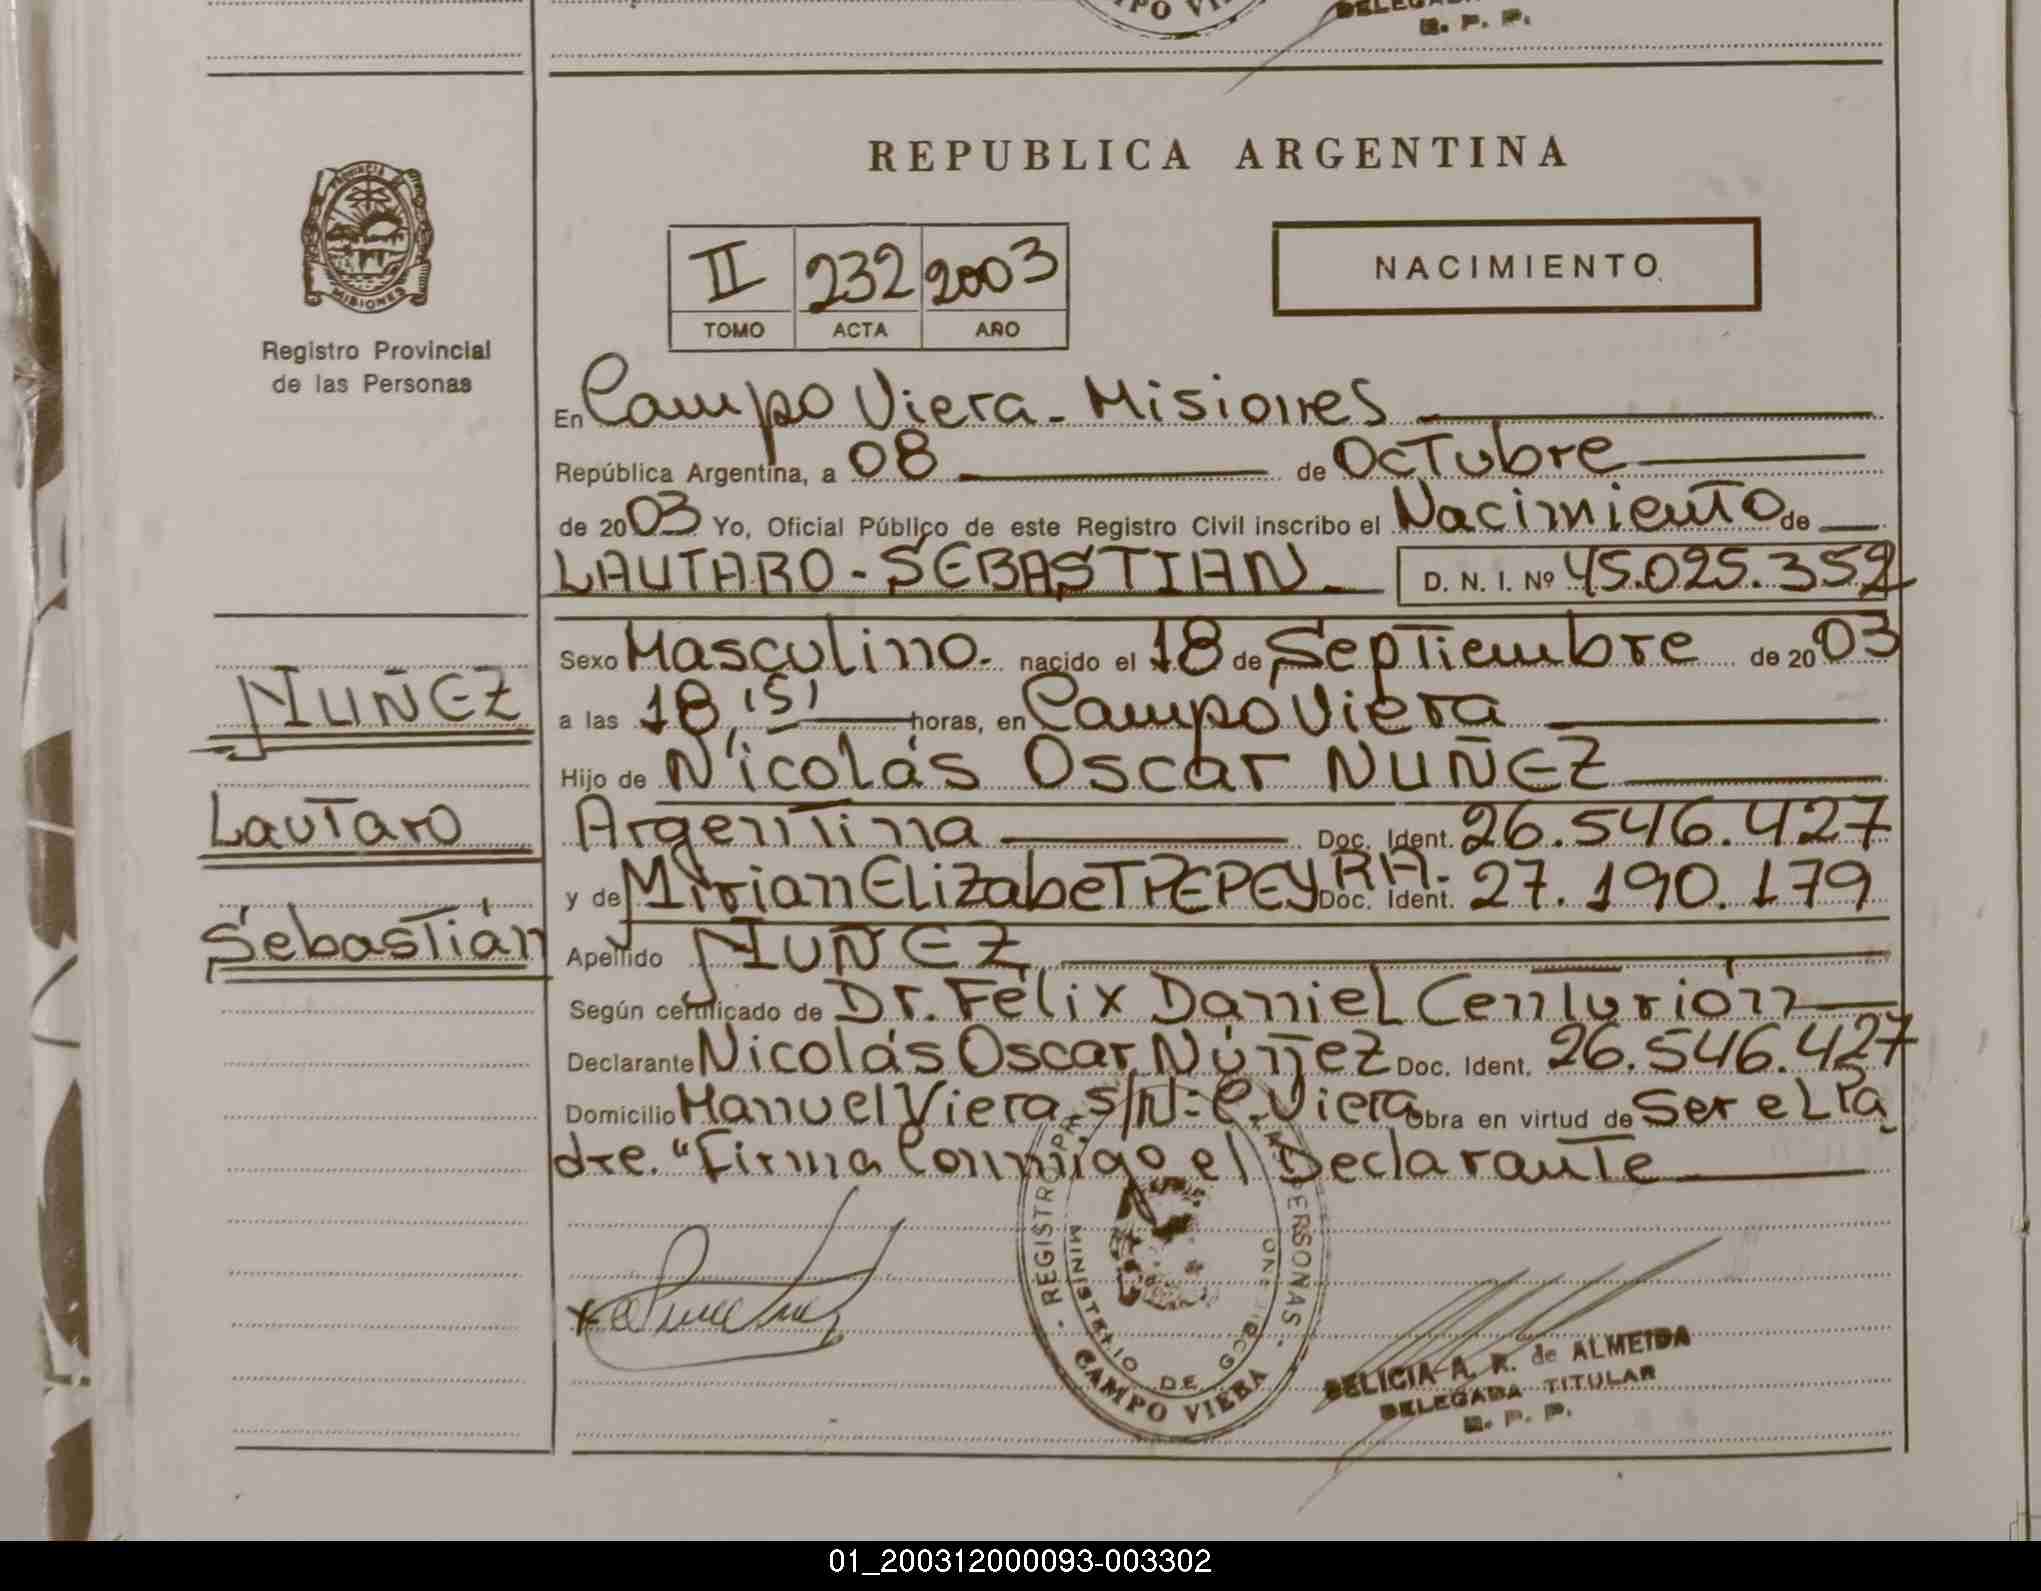 DELEGADA
R. P. P.
PROVINCIA DE
MISIONES
Registro Provincial
de las Personas
REPUBLICA ARGENTINA
II 232 2003
TOMO ACTA AÑO
NACIMIENTO
En Campo Viera - Misiones
República Argentina, a 08 de Octubre
de 2003 Yo, Oficial Público de este Registro Civil inscribo el Nacimiento de
LAUTARO - SEBASTIAN D. N. I. Nº 45.025.352
Sexo Masculino. nacido el 18 de Septiembre de 2003
a las 18,15' horas, en Campo Viera
Hijo de Nicolás Oscar NUÑEZ
Argentina Doc. Ident. 26.546.427
y de Mirian Elizabet PEPEYRA. Doc. Ident. 27.190.179
Apellido NUÑEZ
Según certificado de Dr. Félix Daniel Centurión
Declarante Nicolás Oscar Núñez Doc. Ident. 26.546.427
Domicilio Manuel Viera s/n - C. Viera Obra en virtud de Ser el Pa
dre. "Firma Conmigo el Declarante
NUÑEZ
Lautaro
Sebastián
REGISTRO PERSONAS
MINISTERIO DE GOBIERNO
CAMPO VIERA
DELICIA A. R. de ALMEIDA
DELEGADA TITULAR
R. P. P.
01_200312000093-003302